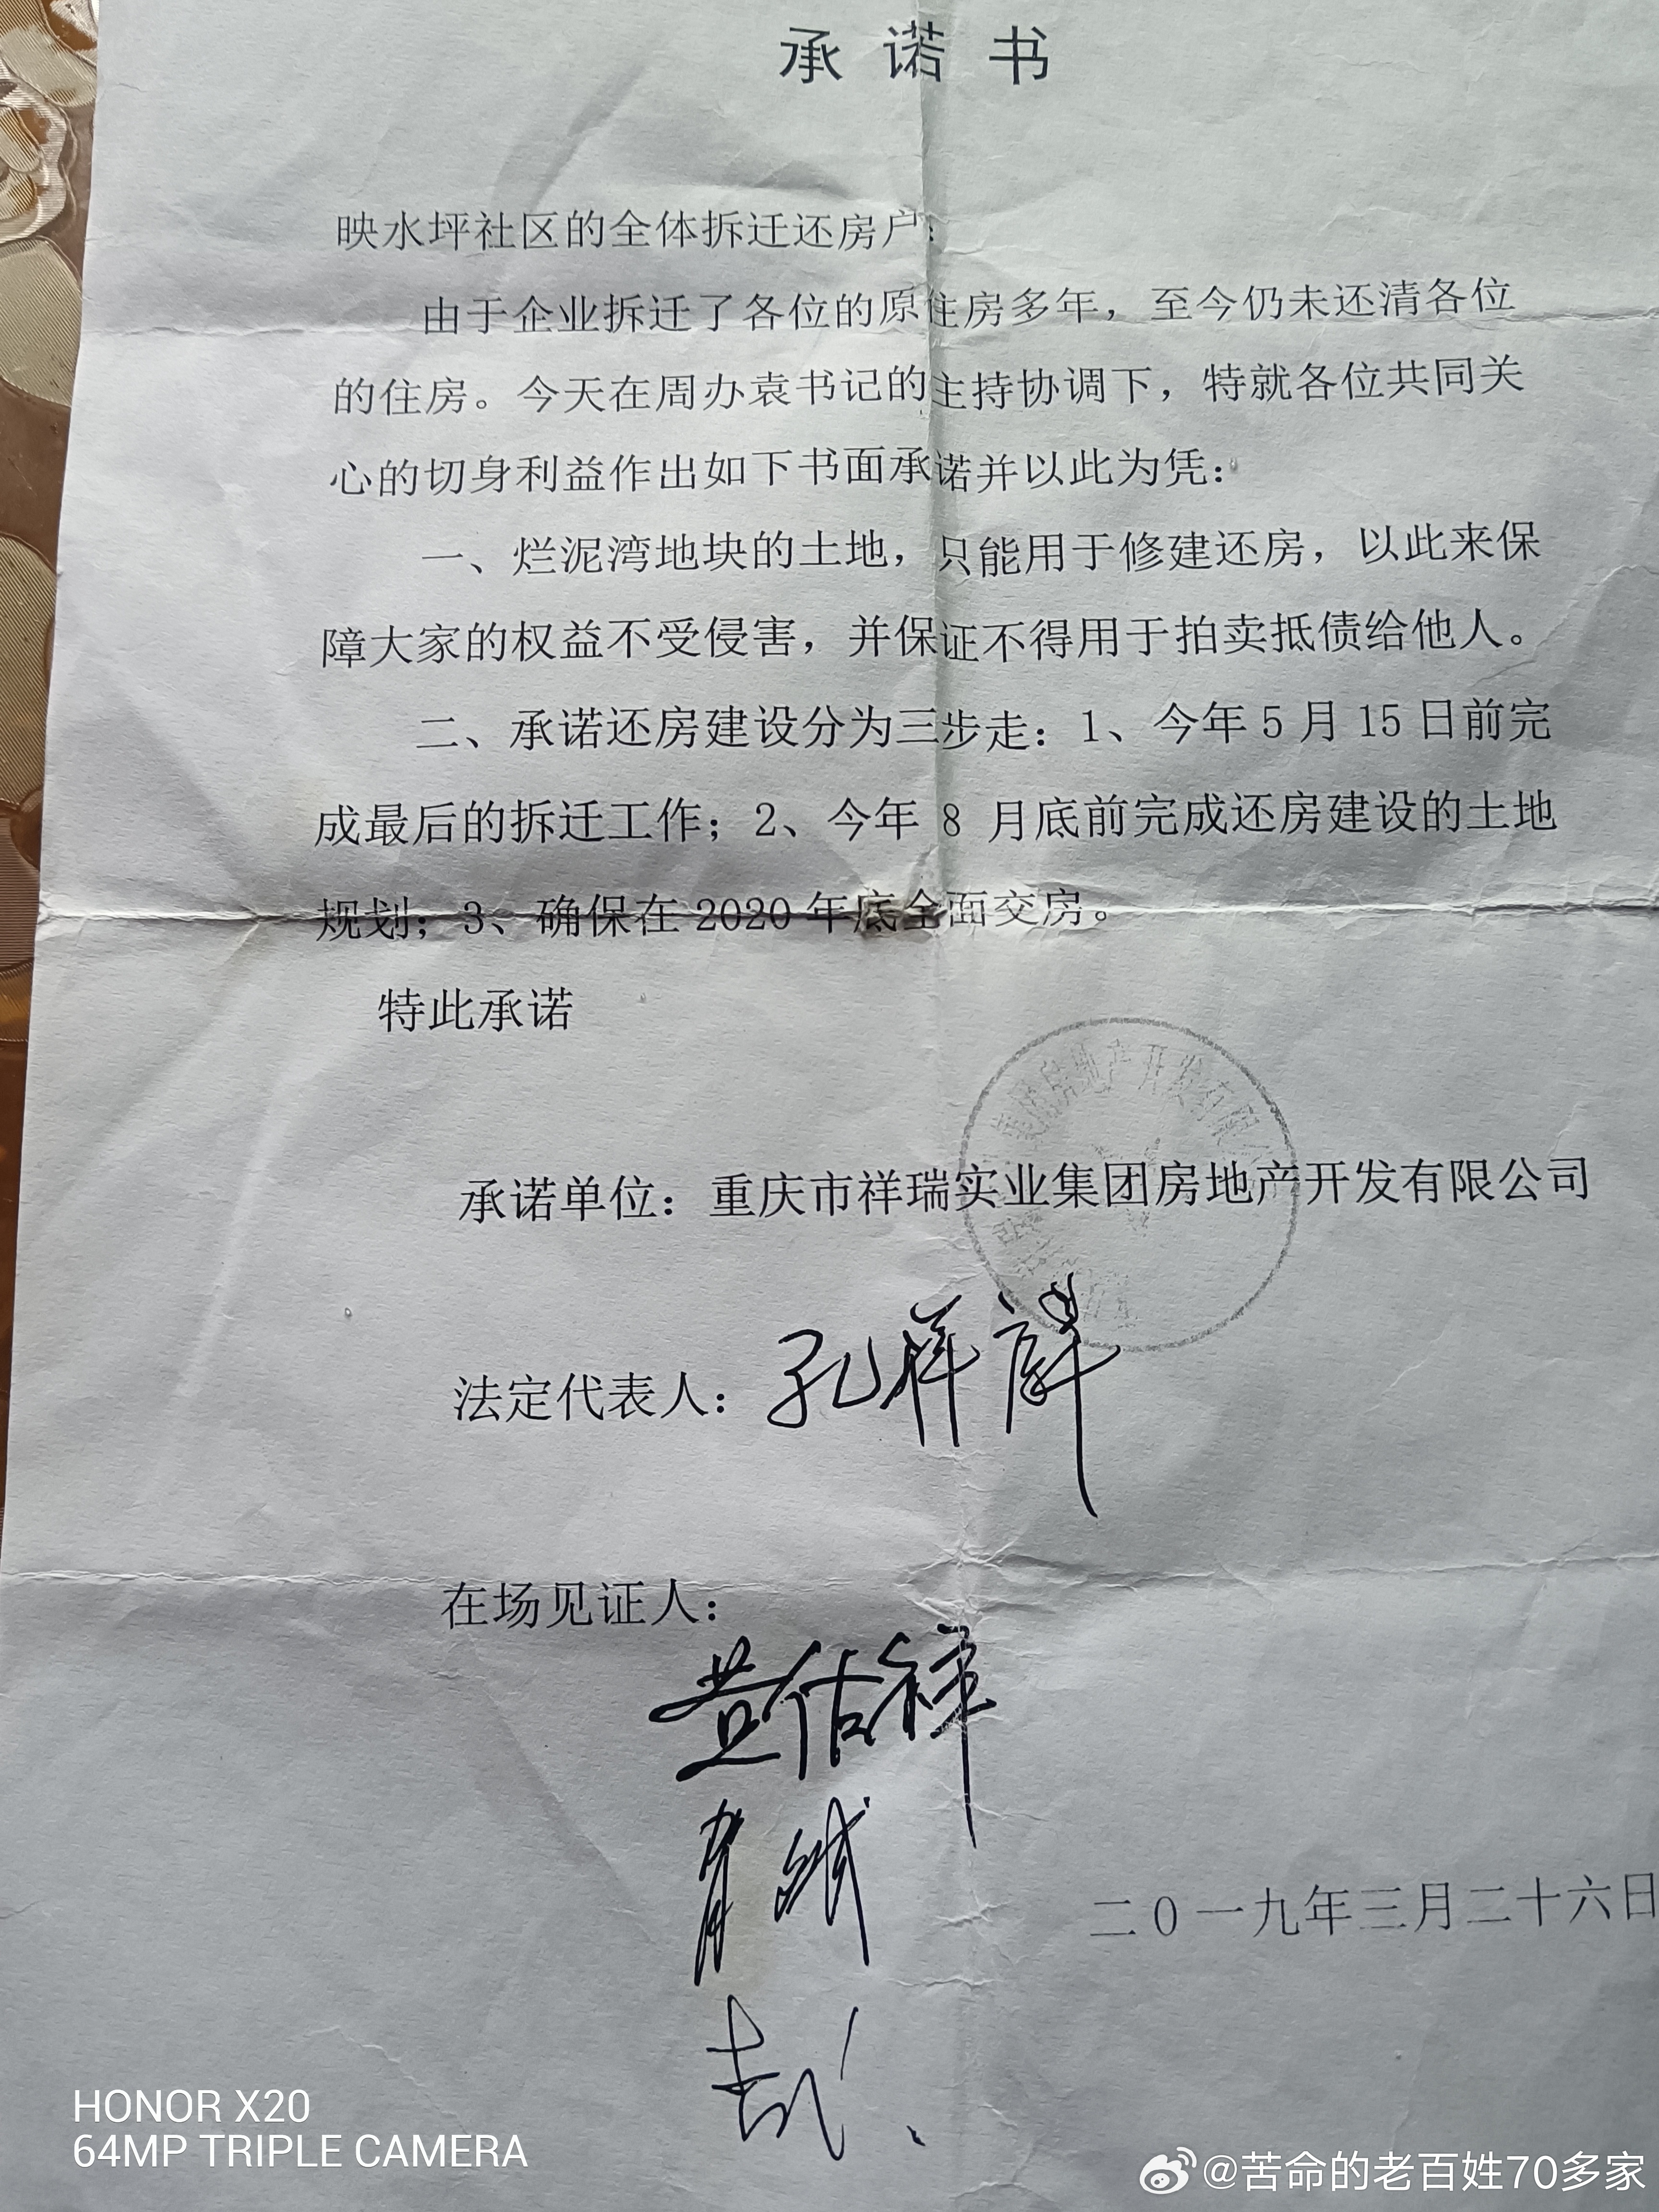 承诺书
映水坪社区的全体拆迁还房户：
由于企业拆迁了各位的原住房多年，至今仍未还清各位
的住房。今天在周办袁书记的主持协调下，特就各位共同关
心的切身利益作出如下书面承诺并以此为凭：
一、烂泥湾地块的土地，只能用于修建还房，以此来保
障大家的权益不受侵害，并保证不得用于拍卖抵债给他人。
二、承诺还房建设分为三步走：1、今年5月15日前完
成最后的拆迁工作；2、今年8月底前完成还房建设的土地
规划；3、确保在2020年底全面交房。
特此承诺
房地产开发有限
承诺单位：重庆市祥瑞实业集团房地产开发有限公司
法定代表人：孔祥
在场见证人：
二0一九年三月二十六日
HONOR X20
64MP TRIPLE CAMERA
@苦命的老百姓70多家